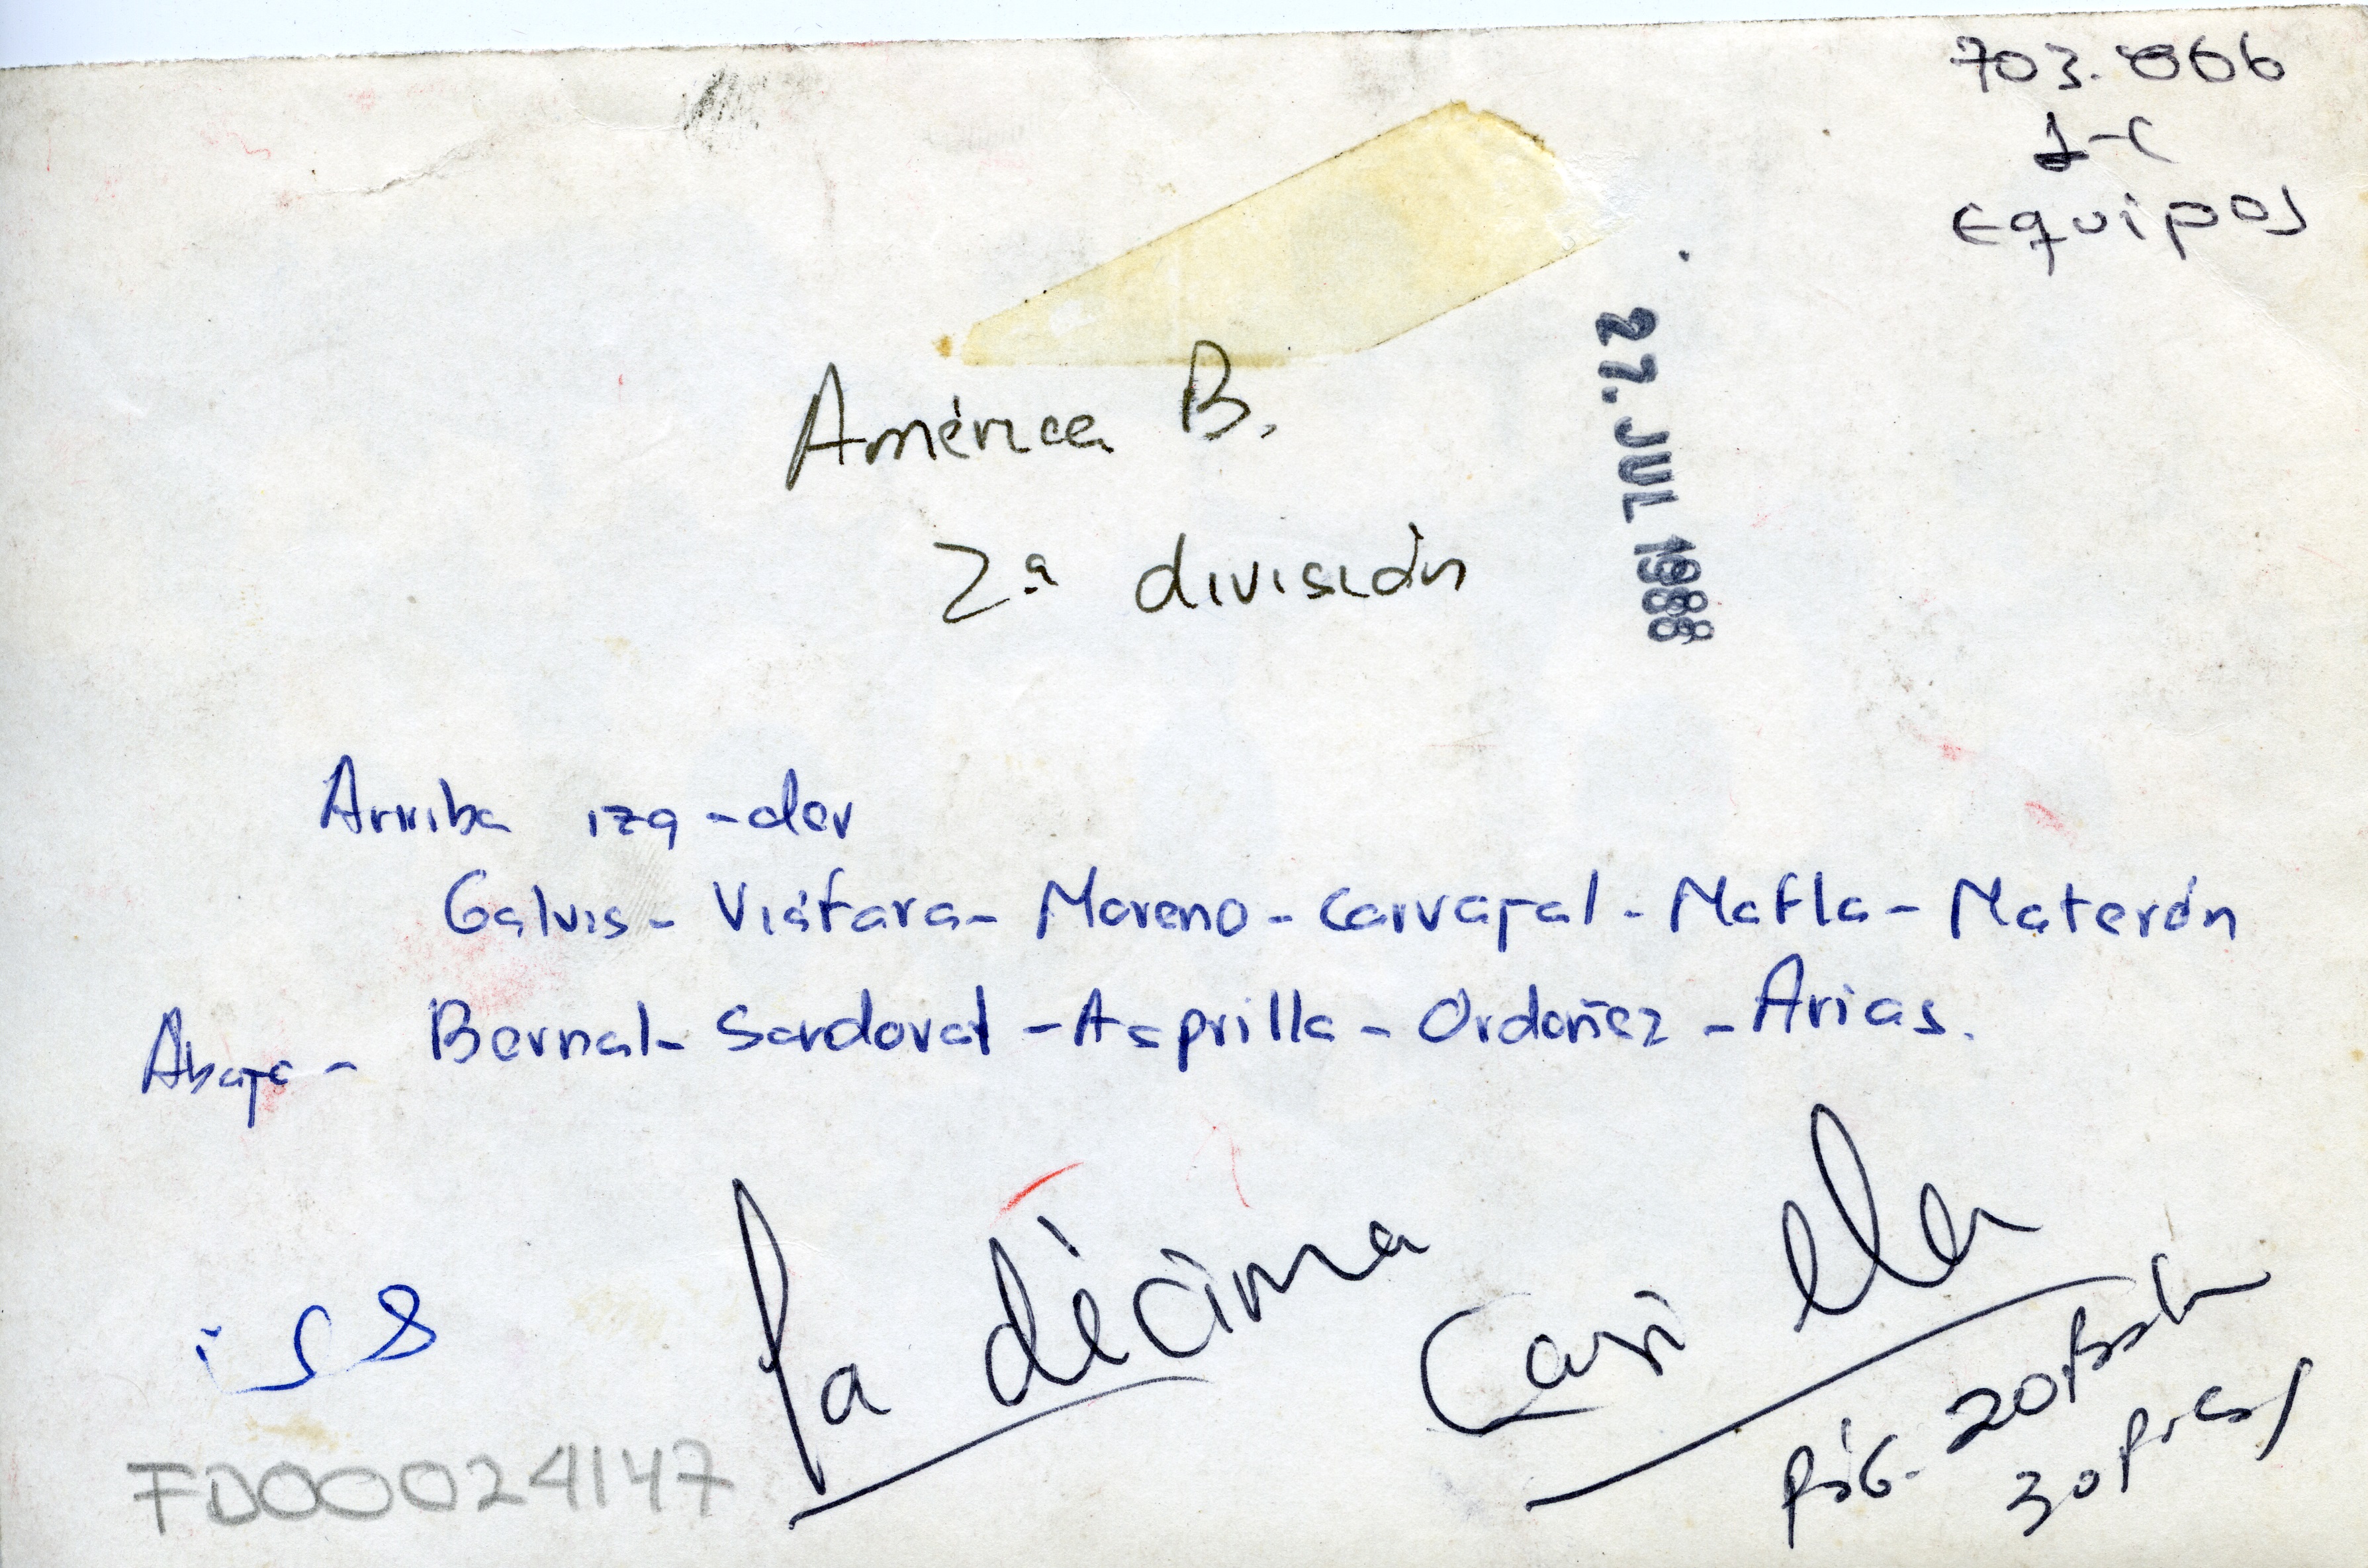 703.866
1-C
Equipos
27. JUL 1988
América B.
2ª división
Arriba izq-der
Galvis - Viáfara - Moreno - Carvajal - Mafla - Materón
Abajo - Bernal - Sandoval - Asprilla - Ordoñez - Arias.
La décima
Casi lla
i S 8
pág. 20
30 picas
FD00024147